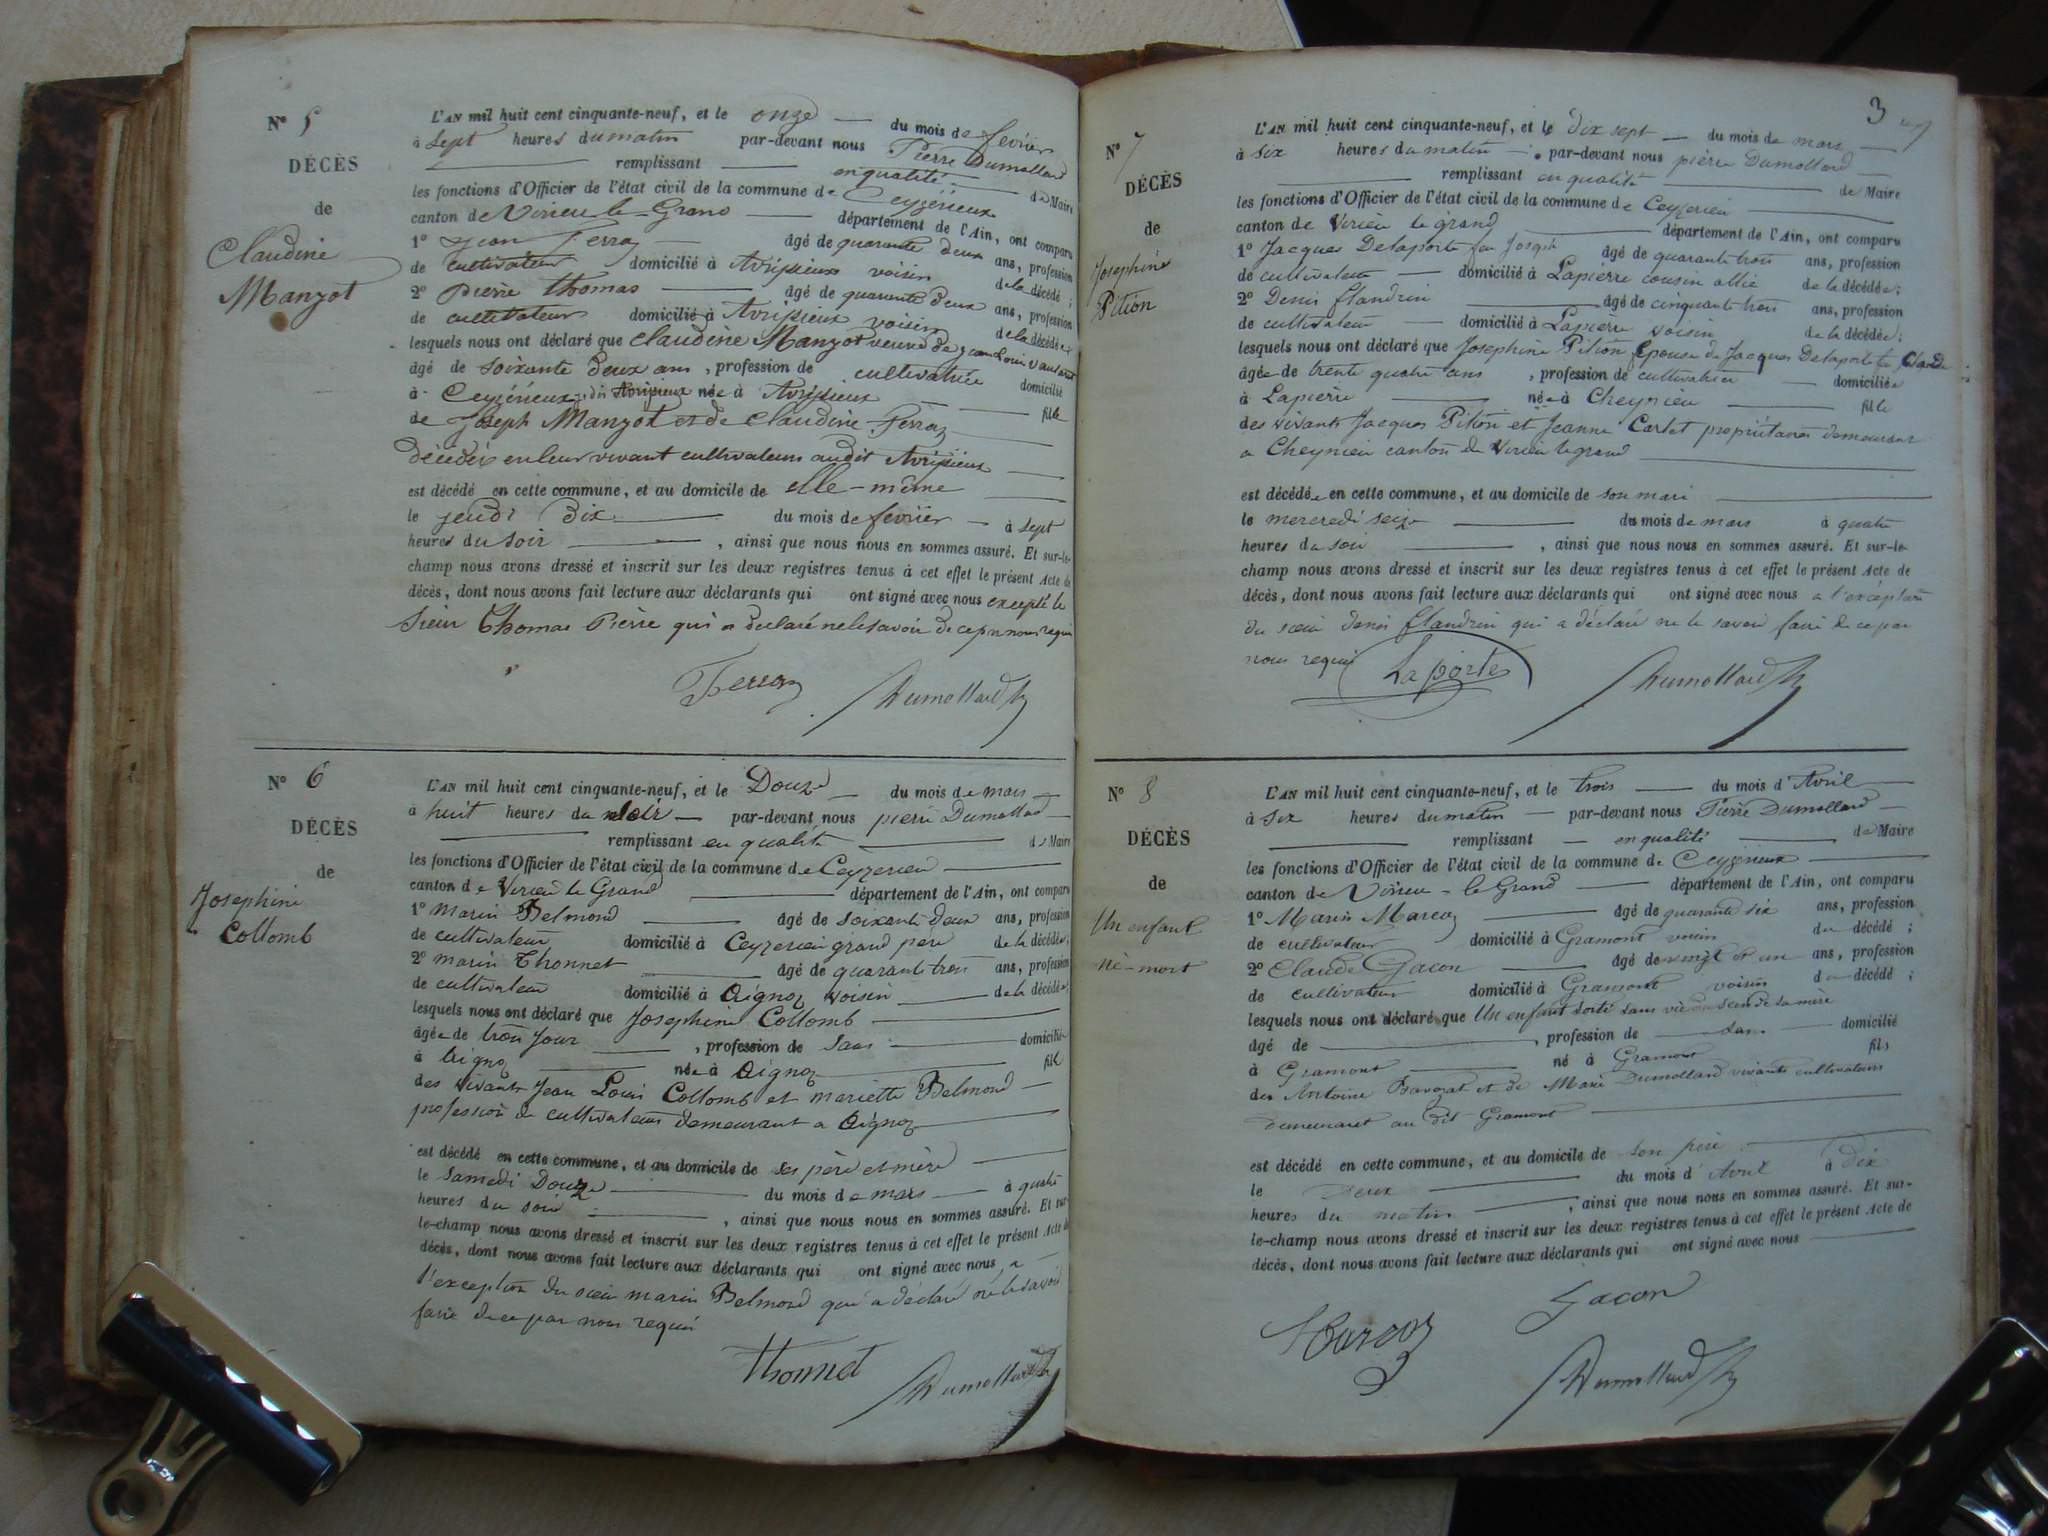 N° 5
DÉCÈS
de
Claudine
Manzot
L'AN mil huit cent cinquante-neuf, et le onze du mois de février
à sept heures du matin par-devant nous Pierre Dumollard
remplissant en qualité de Maire
les fonctions d'Officier de l'état civil de la commune de Ceyzérieux
canton de Virieu le Grand département de l'Ain, ont comparu
1° Jean Ferraz âgé de quarante deux ans, profession
de cultivateur domicilié à Avrissieux voisin de la décédée ;
2° Pierre Thomas âgé de quarante deux ans, profession
de cultivateur domicilié à Avrissieux voisin de la décédée
lesquels nous ont déclaré que Claudine Manzot veuve de jean Louis
âgé de soixante deux ans, profession de cultivatrice domicilié
à Ceyzérieux, née à Avrissieux fille
de Joseph Manzot et de Claudine Ferraz
décédés en leur vivant cultivateurs audit Avrissieux
est décédé en cette commune, et au domicile de elle-même
le jeudi dix du mois de février à sept
heures du soir, ainsi que nous nous en sommes assuré. Et sur-le-
champ nous avons dressé et inscrit sur les deux registres tenus à cet effet le présent Acte de
décès, dont nous avons fait lecture aux déclarants qui ont signé avec nous excepté le
sieur Thomas Pierre qui a declaré ne le savoir de ce par nous requis
Ferraz
Dumollard
N° 6
DÉCÈS
de
Josephine
Collomb
L'AN mil huit cent cinquante-neuf, et le Douze du mois de mars
à huit heures du par-devant nous pierre Dumollard
remplissant en qualité de Maire
les fonctions d'Officier de l'état civil de la commune de Ceyzerieu
canton de Virieu le Grand département de l'Ain, ont comparu
1° Marin Belmond âgé de soixante deux ans, profession
de cultivateur domicilié à Ceyzerieu grand père de la décédée ;
2° marin Thonnet âgé de quarante trois ans, profession
de cultivateur domicilié à Aignoz voisin de la décédée ;
lesquels nous ont déclaré que Josephine Collomb
âgée de trois jour, profession de sans domiciliée
à Aignoz née à Aignoz fille
des vivants Jean Louis Collomb et mariette Belmond
profession de cultivateurs demeurant a Aignoz
est décédé en cette commune, et au domicile de ses père et mère
le samedi Douze du mois de mars à quatre
heures du soir, ainsi que nous nous en sommes assuré. Et sur-
le-champ nous avons dressé et inscrit sur les deux registres tenus à cet effet le présent Acte de
décès, dont nous avons fait lecture aux déclarants qui ont signé avec nous a
l'exception du sieur marin Belmond qui a déclaré ne le savoir
faire de ce par nous requis
Thonnet
Dumollard
3
N° 7
DÉCÈS
de
Josephine
Pition
L'AN mil huit cent cinquante-neuf, et le dix sept du mois de mars
à six heures du matin par-devant nous pierre Dumollard
remplissant en qualité de Maire
les fonctions d'Officier de l'état civil de la commune de Ceyzerieu
canton de Virieu le grand département de l'Ain, ont comparu
1° Jacques Delaporte feu Joseph âgé de quarante trois ans, profession
de cultivateur domicilié à Lapierre cousin allié de la décédée ;
2° Denis flandrin âgé de cinquante trois ans, profession
de cultivateur domicilié à Lapierre voisin de la décédée ;
lesquels nous ont déclaré que Josephine Pition Epouse de Jacques Delaporte feu Claude
âgée de trente quatre ans, profession de cultivatrice domiciliée
à Lapierre née à Cheynieu fille
des vivants Jacques Pition et Jeanne Cartet propriétaires demeurant
a Cheynieu canton de Virieu le grand
est décédée en cette commune, et au domicile de son mari
le mercredi seize du mois de mars à quatre
heures du soir, ainsi que nous nous en sommes assuré. Et sur-le-
champ nous avons dressé et inscrit sur les deux registres tenus à cet effet le présent Acte de
décès, dont nous avons fait lecture aux déclarants qui ont signé avec nous a l'exception
du sieur denis flandrin qui a déclaré ne le savoir faire de ce par
nous requis
Laporte
Dumollard
N° 8
DÉCÈS
de
Un enfant
né-mort
L'AN mil huit cent cinquante-neuf, et le trois du mois d'Avril
à six heures du matin par-devant nous Pierre Dumollard
remplissant en qualité de Maire
les fonctions d'Officier de l'état civil de la commune de Ceyzérieux
canton de Virieu-le Grand département de l'Ain, ont comparu
1° Marin Marcoz âgé de quarante six ans, profession
de cultivateur domicilié à Gramont voisin du décédé ;
2° Claude Gacon âgé de vingt et un ans, profession
de cultivateur domicilié à Gramont voisin du décédé ;
lesquels nous ont déclaré que Un enfant sorti sans vie du sein de sa mère
âgé de, profession de sans domicilié
à Gramont né à Gramont fils
de Antoine et de Marie Dumollard vivants cultivateurs
demeurant au dit Gramont
est décédé en cette commune, et au domicile de son père
le deux du mois d'Avril à dix
heures du matin, ainsi que nous nous en sommes assuré. Et sur-
le-champ nous avons dressé et inscrit sur les deux registres tenus à cet effet le présent Acte de
décès, dont nous avons fait lecture aux déclarants qui ont signé avec nous
Marcoz
Gacon
Dumollard